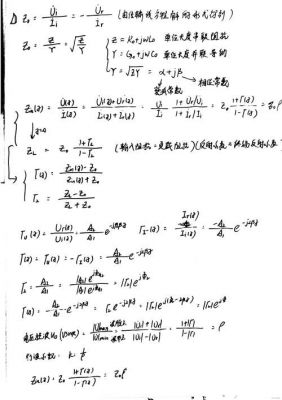 Δ Z₀ = Ui/Ii = -Ur/Ir
Z₀ = Z/γ = √(Z/Y)
Z = R₀+jωL₀ 单位长度串联阻抗
Y = G₀+jωC₀ 单位长度并联导纳
γ = √ZY = α+jβ
相位常数
衰减常数
Zin(z) = U(z)/I(z) = (Ui(z)+Ur(z))/(Ii(z)+Ir(z)) = Ui/Ii · (1+Ur/Ui)/(1+Ir/Ii) = Z₀ (1+Γ(z))/(1-Γ(z))
z=0
ZL = Z₀ (1+ΓL)/(1-ΓL)
Γ(z) = (Zin(z)-Z₀)/(Zin(z)+Z₀)
ΓL = (ZL-Z₀)/(ZL+Z₀)
Γu(z) = Ur(z)/Ui(z) = A₂/A₁ e^-j2βz ΓI(z) = Ir(z)/Ii(z) = -A₂/A₁ e^-j2βz
Γ(z) = Γu(z) = -ΓI(z) = A₂/A₁ e^-j2βz
ΓL = A₂/A₁ = = |ΓL|e^jφL
Γ(z) = A₂/A₁ e^-j2βz = ΓL e^-j2βz = |ΓL|e^j(φL-2βz) = |ΓL|e^jφ
(VSWR) = |U|max/|U|min = (|Ui|+|Ur|)/(|Ui|-|Ur|) = (1+|Γ|)/(1-|Γ|) = ρ
行波系数: K
Zin(z) = Z₀ (1+Γ(z))/(1-Γ(z)) = Z₀ρ